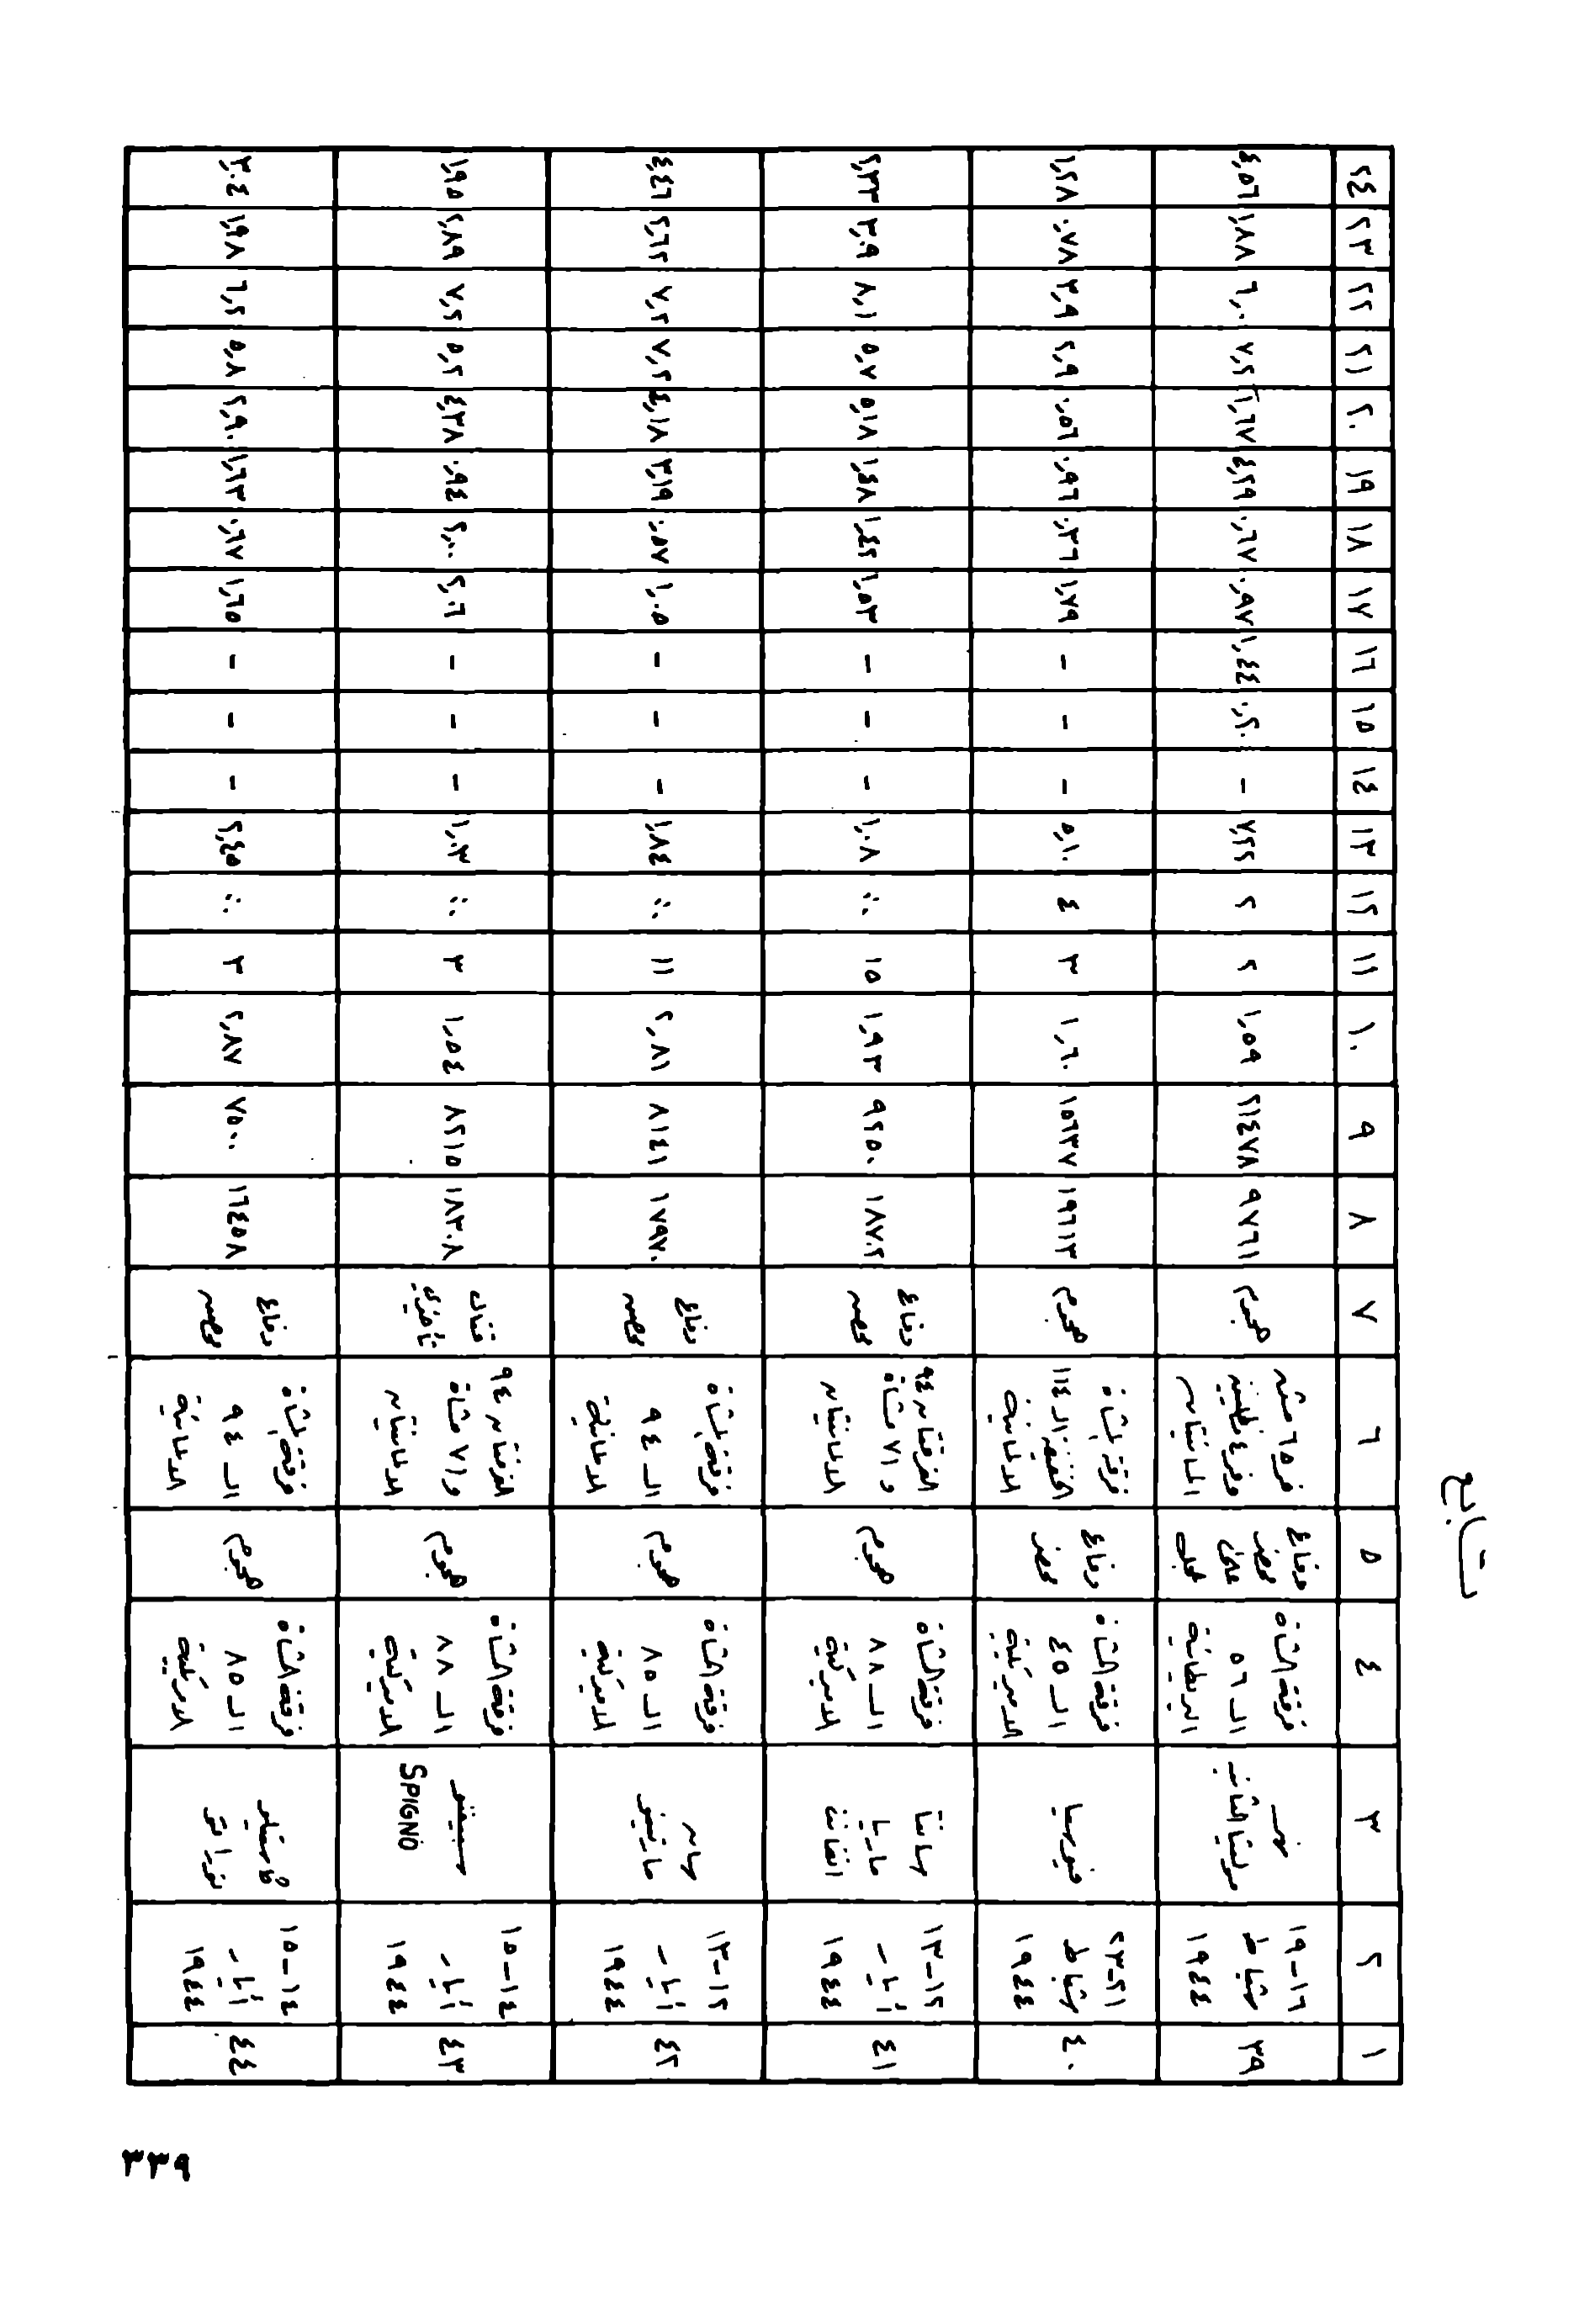 تابع
١ ٢ ٣ ٤ ٥ ٦ ٧ ٨ ٩ ١٠ ١١ ١٢ ١٣ ١٤ ١٥ ١٦ ١٧ ١٨ ١٩ ٢٠ ٢١ ٢٢ ٢٣ ٢٤
٣٩ ١٦-١٩ شباط ١٩٤٤ موليتا الثانية فرقة المشاة الـ ٥٦ البريطانية دفاع محضر على عجل فر ٦٥ مشاة وفر ٤ مظليين المانيتان هجوم ٩٧٦١ ٢١٤٧٨ ١,٥٩ ٢ ٢ ٧,٢٢ - ٠,٢٠ ١,٤٤ ٠,٩٧ ٠,٦٧ ٤,٢٩ ١,٦٧ ٧,٢ ٦,٠ ١,٨٨ ٤,٥٦
٤٠ ٢١-٢٣ شباط ١٩٤٤ فيوريا فرقة المشاة الـ ٤٥ الاميركية دفاع محضر فرقة المشاة الخفيفة الـ ١١٤ الالمانية هجوم ١٩٦١٣ ١٥٦٣٧ ١,٦٠ ٣ ٤ ٥,١٠ - - - ١,٧٩ ٠,٣٦ ٠,٩٦ ٠,٥٦ ٢,٩ ٣,٩ ٠,٧٨ ١,٢٨
٤١ ١٢-١٣ أيار ١٩٤٤ سانتا ماريا انفانت فرقة المشاة الـ ٨٨ الاميركية هجوم الفرقتان ٩٤ و ٧١ مشاة الالمانيتان دفاع محصن ١٨٧٠٢ ٩٢٥٠ ١,٩٣ ١٥ ∴ ١,٠٨ - - - ١,٥٣ ١,٤٢ ١,٤٨ ٥,١٨ ٥,٧ ٨,١ ٣,٠٩ ٢,٣٣
٤٢ ١٢-١٣ أيار ١٩٤٤ سان مارتينو فرقة المشاة الـ ٨٥ الاميركية هجوم فرقة المشاة الـ ٩٤ الالمانية دفاع محصن ١٧٩٧٠ ٨١٤١ ٢,٨١ ١١ ∴ ١,٨٤ - - - ١,٠٥ ٠,٥٧ ٣,١٩ ٤,١٨ ٧,٢ ٧,٢ ٢,٦٢ ٤,٤٦
٤٣ ١٤-١٥ أيار ١٩٤٤ سبيغنو SPIGNO فرقة المشاة الـ ٨٨ الاميركية هجوم الفرقتان ٩٤ و ٧١ مشاة الالمانيتان قتال تأخيري ١٨٣٠٨ ٨٢١٥ ١,٥٤ ٣ ∴ ١,٠٣ - - - ٢,٠٦ ٢,٠٠ ٠,٩٤ ٤,٣٨ ٥,٢ ٧,٢ ٢,٨٩ ١,٩٥
٤٤ ١٤-١٥ أيار ١٩٤٤ فرقة المشاة الـ ٨٥ الاميركية هجوم فرقة المشاة الـ ٩٤ الالمانية دفاع محصن ١٦٤٥٨ ٧٥٠٠ ٢,٨٧ ٣ ∴ ٢,٤٥ - - - ١,٦٥ ٠,٦٧ ١,٦٣ ٢,٩٠ ٥,٨ ٦,٢ ١,٩٨ ٣,٠٤
٣٣٩